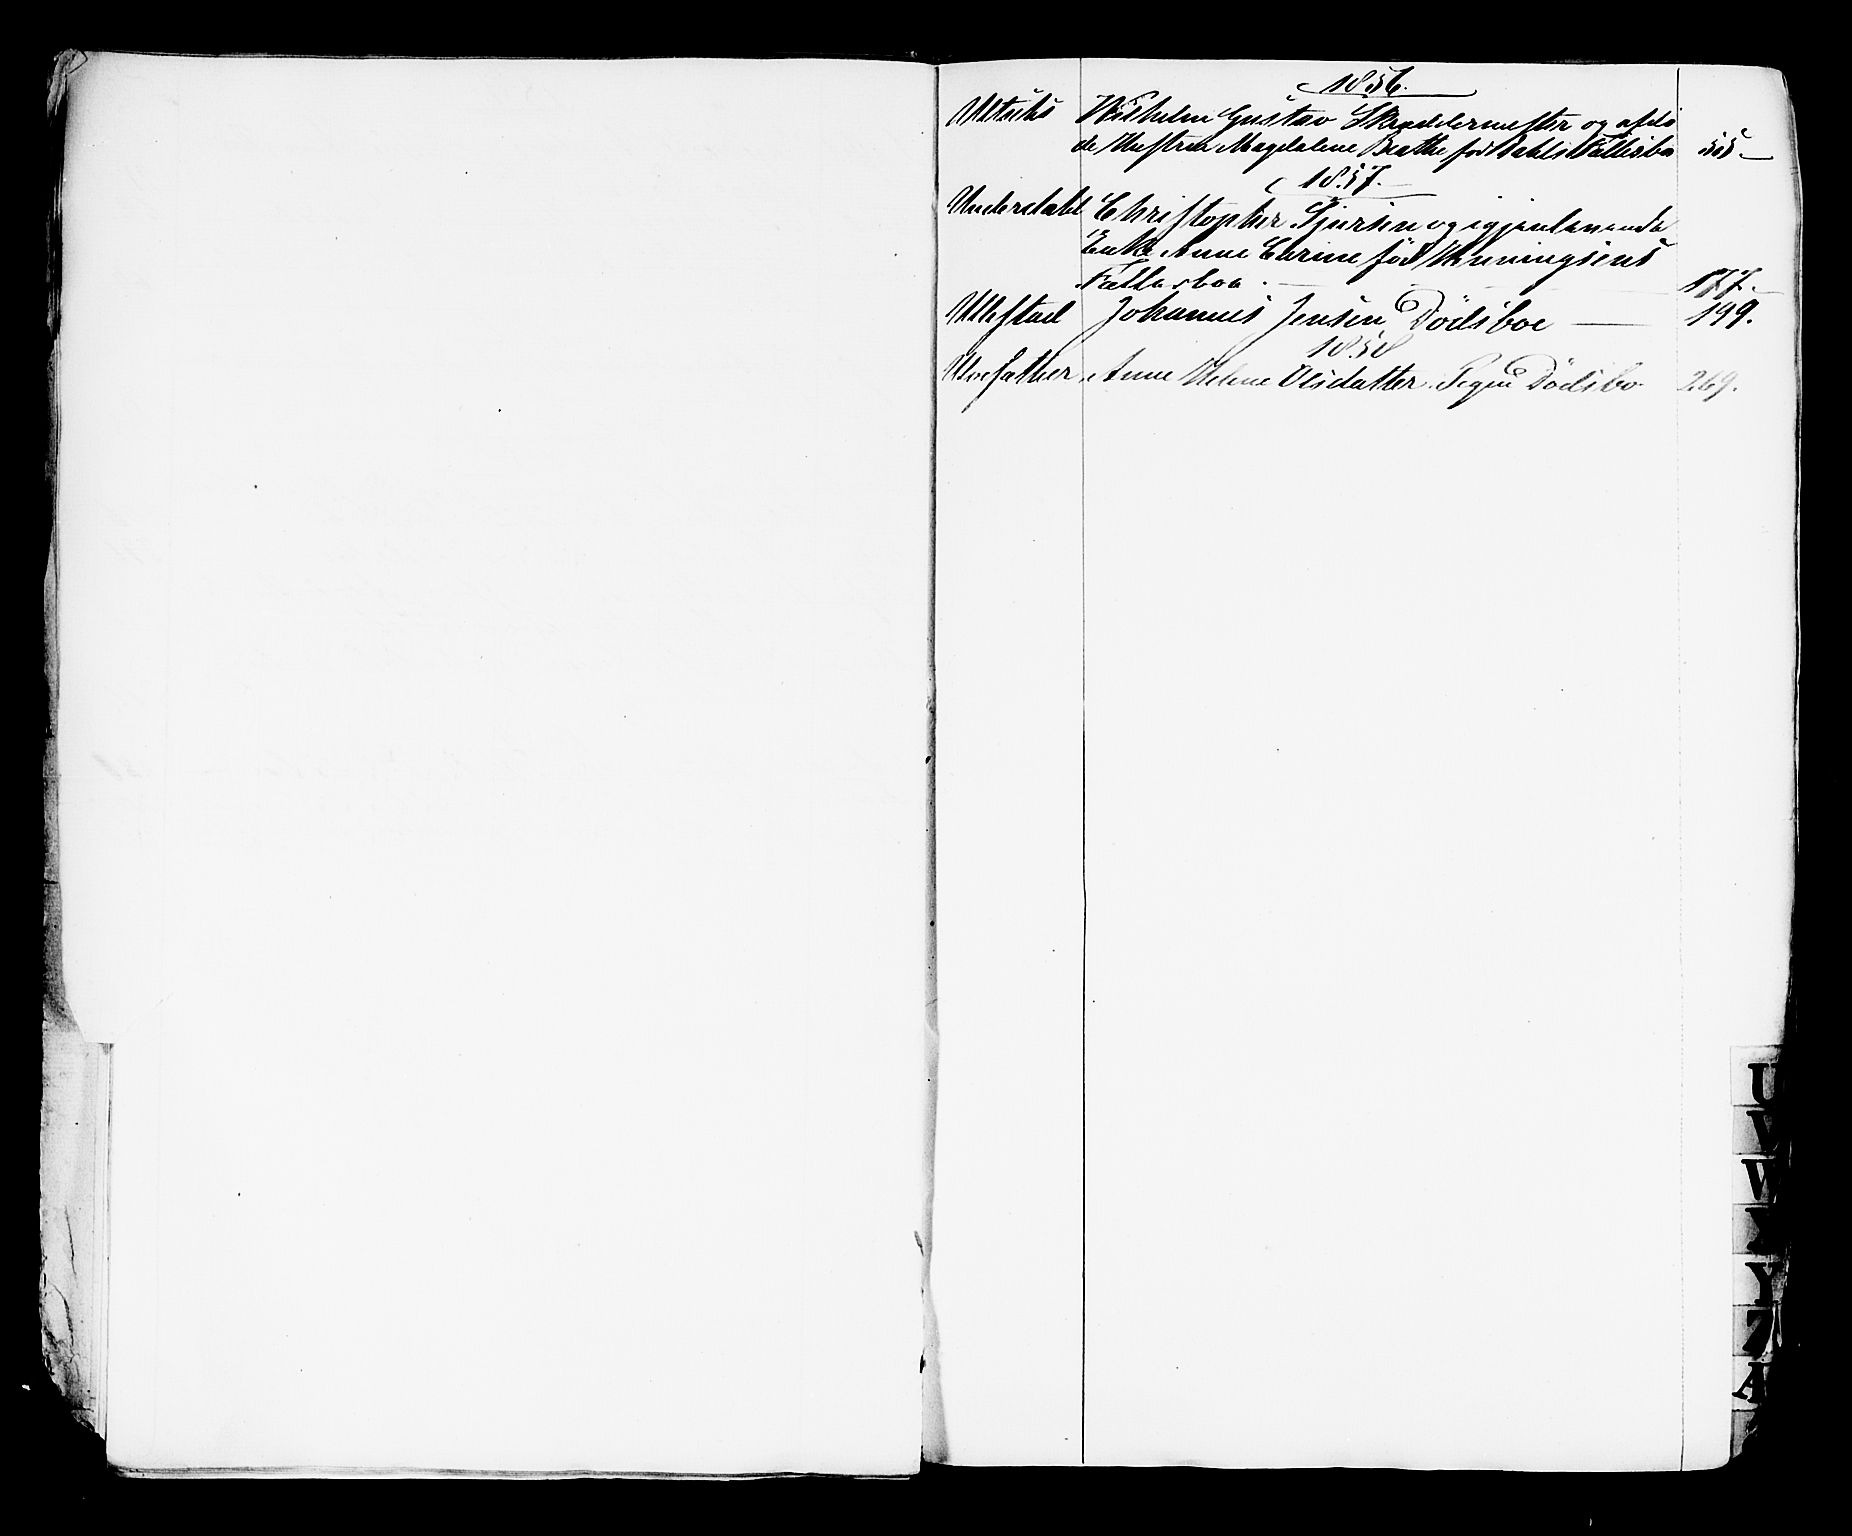 1856.
Wilhelm Gustav Skræddermester og afdø
de Hustru Magdalene Beathe fød Dahls Fællesbo 55
1857.
Underdahl Christopher Sjursen og igjenlevende
Enke Anne Carine fød Henningsens
Fællesboe. 177.
Ullestad Johannes Jensen Dödsboe 199.
1858
Anne Helene Olsdatter Pige Dödsbo 269.
U
V
W
X
Y
Z